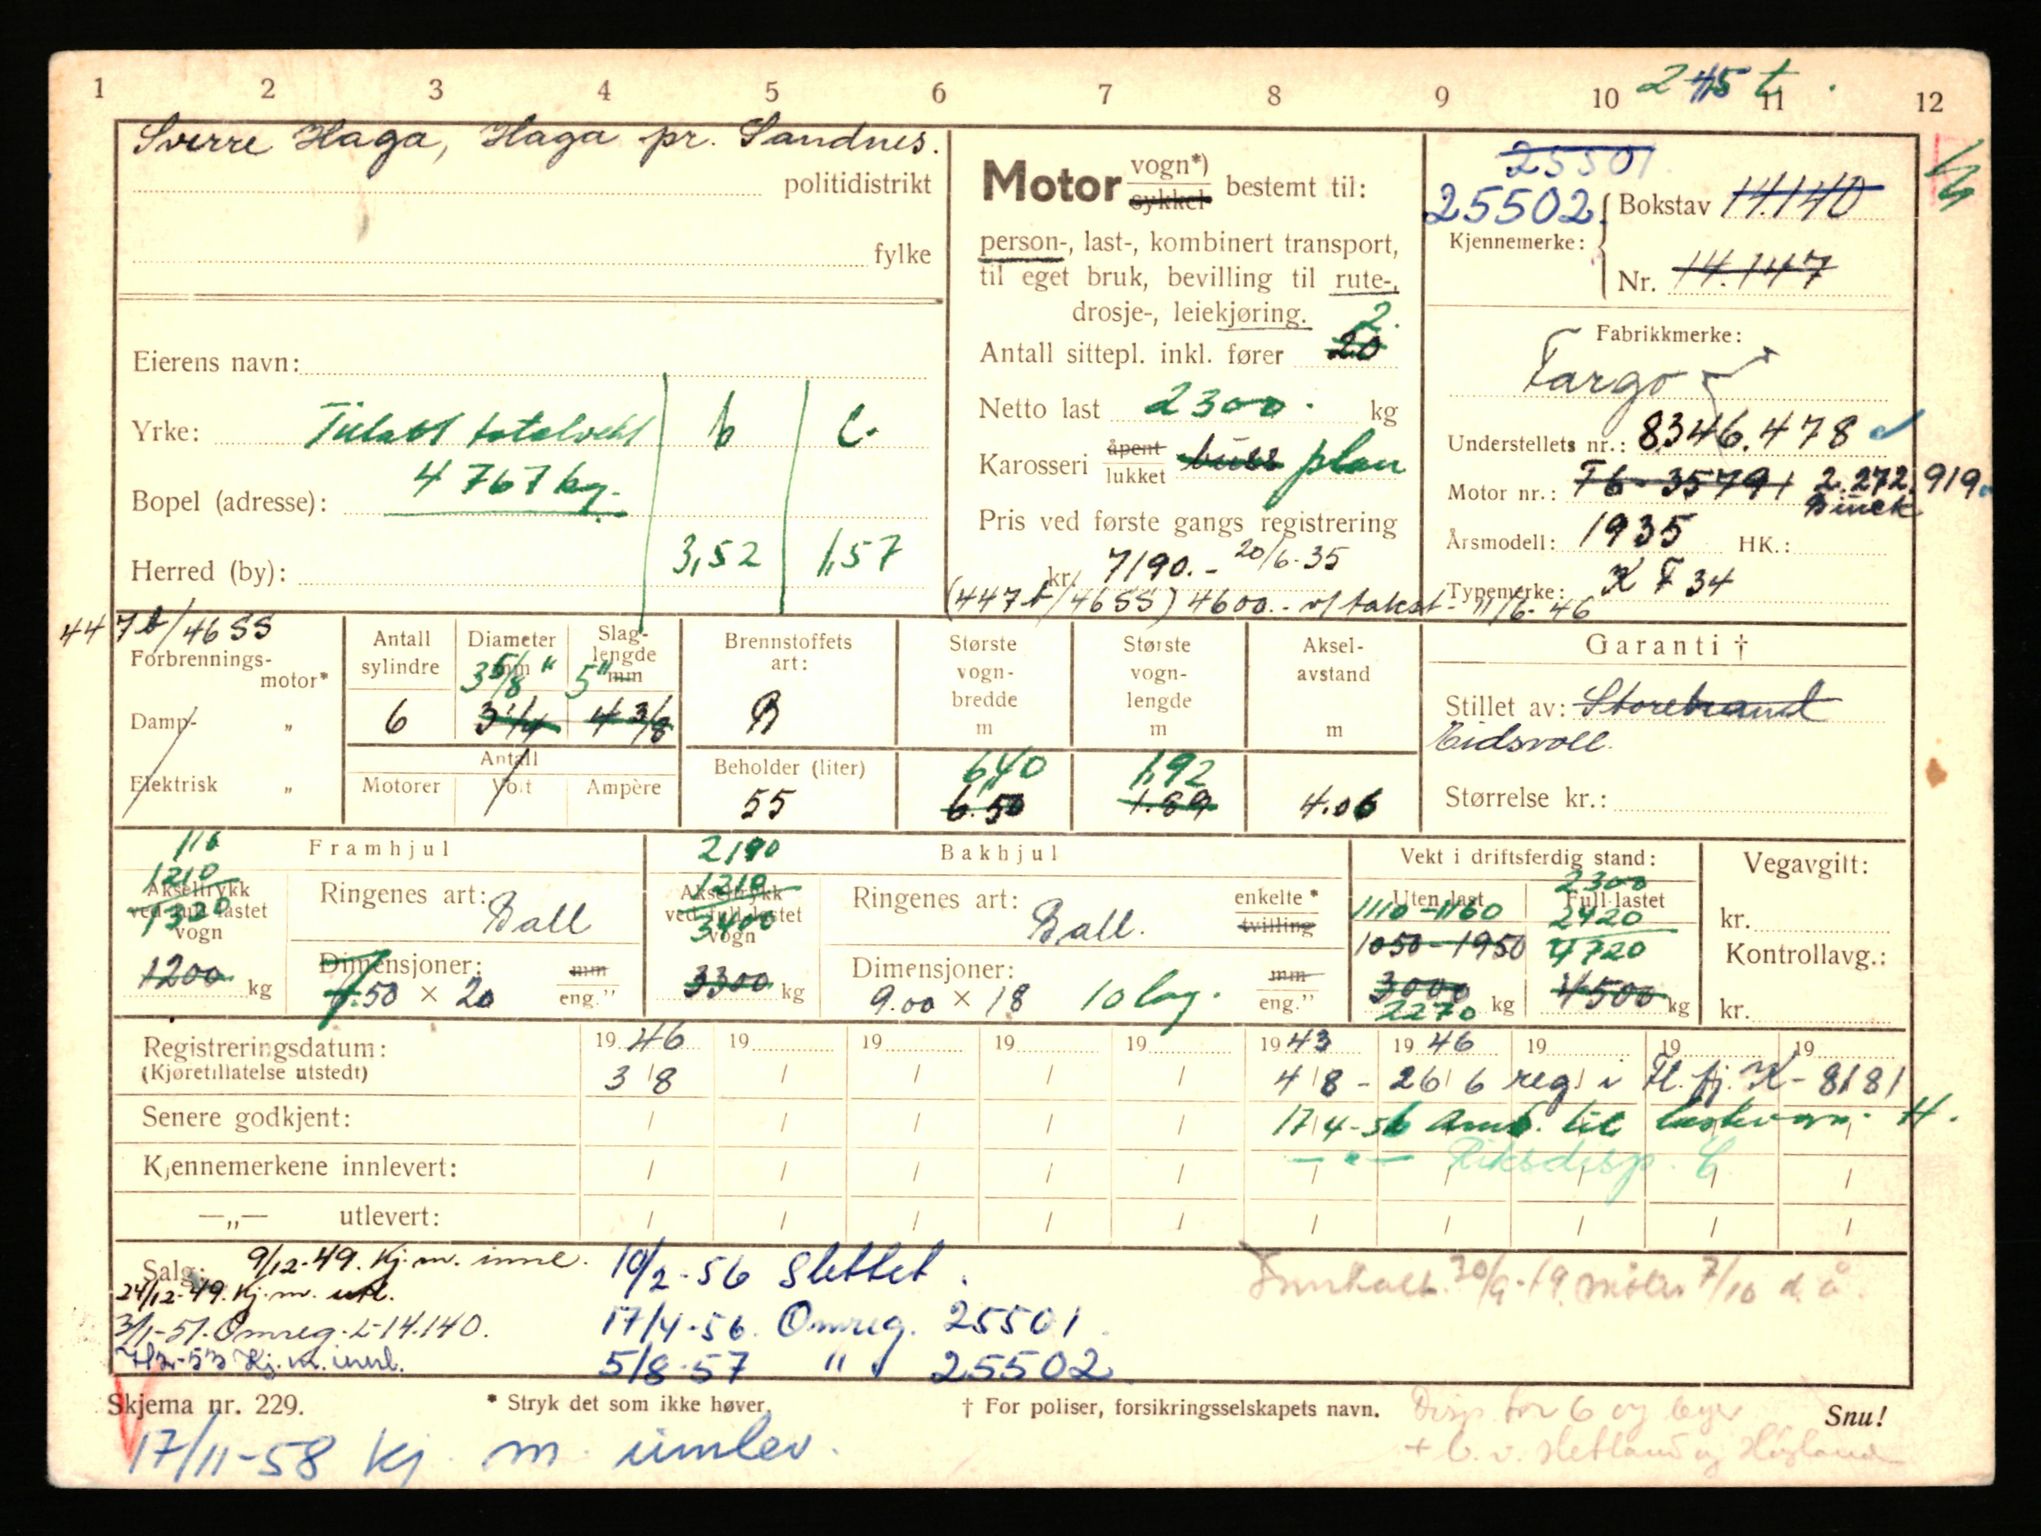 1 2 3 4 5 6 7 8 9 10 11 12
245 t.
Sverre Haga, Haga pr. Sandnes.
politidistrikt
fylke
Eierens navn:
Yrke: Tillatt totalvekt b c.
4767 kg.
Bopel (adresse):
Herred (by): 3,52 1,57
Motor vogn*) sykkel bestemt til:
person-, last-, kombinert transport,
til eget bruk, bevilling til rute-,
drosje-, leiekjøring.
2.
Antall sittepl. inkl. fører 20
Netto last 2300. kg
Karosseri åpent lukket buss plan
Pris ved første gangs registrering
kr. 7190.- 20/6-35
(447 b/46 SS) 4600.- v/ takst - 11/6-46
25501
25502
Kjennemerke: Bokstav 14.140
Nr. 14.147
Fabrikkmerke:
Fargo
Understellets nr.: 8346.478
Motor nr.: T6-35791 2.272.919
Årsmodell: 1935 HK.:
Typemerke: K F 34
447 b/46 SS
Forbrennings-motor*
Damp- „
Elektrisk „
Antall sylindre
6
Diameter mm
3 5/8 "
3 1/4
Slag-lengde mm
5"
4 3/8
Antall
Motorer Volt Ampère
Brennstoffets art:
B
Beholder (liter)
55
Største vogn-bredde m
6,40
6.50
Største vogn-lengde m
1,92
1.89
Aksel-avstand m
4.06
Garanti †
Stillet av: Storebrand
Eidsvoll.
Størrelse kr.:
Framhjul
1210
Akseltrykk ved full lastet vogn
1320
1200 kg
Ringenes art: Ball
Dimensjoner: mm eng."
7.50 × 20
Bakhjul
2190
1210
Akseltrykk ved full lastet vogn
3400
3300 kg
Ringenes art: Ball. enkelte* tvilling
Dimensjoner: mm eng."
9.00 × 18 10 lag.
Vekt i driftsferdig stand:
Uten last
1110-1160
1050-1950
3000 kg
2270
Full lastet
2300
2420
4720
4500 kg
Vegavgift:
kr.
Kontrollavg.:
kr.
Registreringsdatum: 1946 19 19 19 19 1943 1946 19 19 19
(Kjøretillatelse utstedt) 3/8 / / / / 4/8 - 26/6 reg. i Fl. fj. K-8181
Senere godkjent: 17/4-56 Omb. til lastvogn. H.
Kjennemerkene innlevert: —"— Riksdisp. C
—„— utlevert:
Salg: 9/12-49. Kj. m. innl.
24/12-49. Kj. m. utl.
3/1-51. Omreg. L-14.140.
Kj. m. innl.
10/2-56 Slettet.
17/4-56. Omreg. 25501.
5/8-57 " 25502
Innkalt. 30/9-49. møter 7/10 d. å.
Skjema nr. 229.
* Stryk det som ikke høver.
† For poliser, forsikringsselskapets navn.
Snu!
Disp. for b og
+ b. v. Hetland og Høyland
17/11-58 Kj. m. innlev.